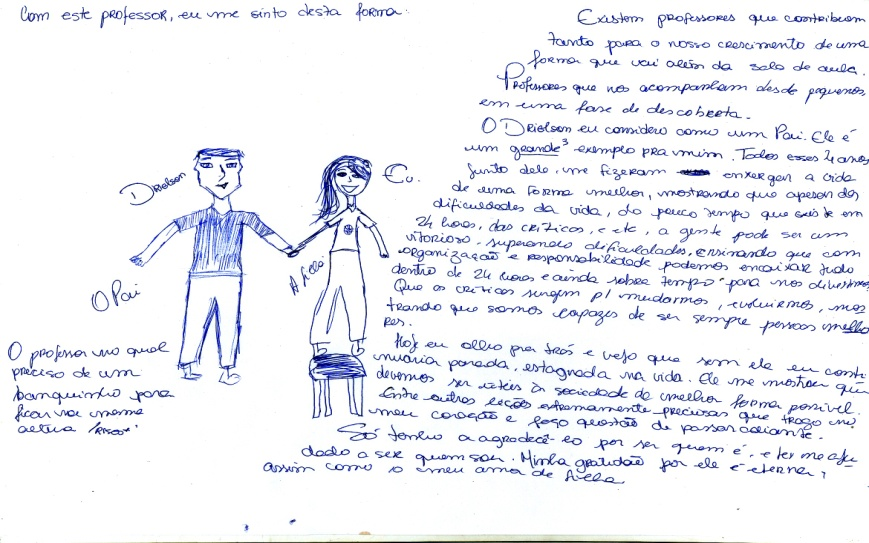 Com este professor, eu me sinto desta forma:
Existem professores que contribuem
tanto para o nosso crescimento de uma
forma que vai além da sala de aula.
Professores que nos acompanham desde pequenos,
em uma fase de descoberta.
O Drielson eu considero como um Pai. Ele é
um grande³ exemplo pra mim. Todos esses 4 anos
junto dele, me fizeram enxergar a vida
de uma forma melhor, mostrando que apesar das
dificuldades da vida, do pouco tempo que existe em
24 horas, das críticas, e etc, a gente pode ser um
vitorioso, superando dificuldades, ensinando que com
organização e responsabilidade podemos encaixar tudo
dentro de 24 horas e ainda sobra tempo para nos divertimos.
Que as críticas surgem p/ mudarmos, evoluirmos, mos
trando que somos capazes de ser sempre pessoas melho
res.
Hoje eu olho pra trás e vejo que sem ele eu conti
nuaria parada, estagnada na vida. Ele me mostrou que
devemos ser úteis à sociedade da melhor forma possível.
Entre outras lições extremamente preciosas que trago no
meu coração e faço questão de passar adiante.
Só tenho a agradecê-lo por ser quem é, e ter me aju
dado a ser quem sou. Minha gratidão por ele é eterna,
assim como o meu amor de filha
Drielson
Eu.
O Pai
A filha
O professor no qual
preciso de um
banquinho para
ficar na mesma
altura